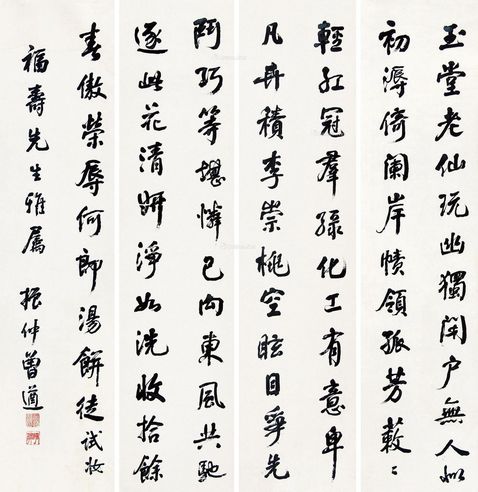 玉堂老仙玩幽獨閉户無人似
初溽倚闌岸幘領孤芳蔌〻
輕紅冠羣綠化工有意卑
凡卉積李崇桃空眩目爭先
鬪巧等堪憐已向東風共馳
逐此花清妍淨如洗收拾餘
春傲榮辱何郎湯餅徒試妝
福壽先生雅屬 振仲曾遒